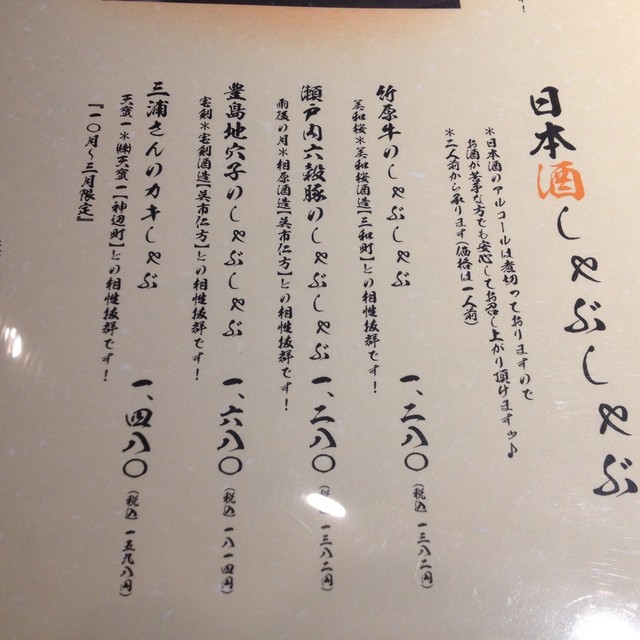 日本酒しゃぶしゃぶ
＊日本酒のアルコールは煮切っておりますので
お酒が苦手な方でも安心してお召し上がり頂けますッ♪
＊二人前から承ります（価格は一人前）
竹原牛のしゃぶしゃぶ 一、二八〇（税込 一三八二円）
美和桜＊美和桜酒造【三和町】との相性抜群です！
瀬戸内六穀豚のしゃぶしゃぶ 一、二八〇（税込 一三八二円）
雨後の月＊相原酒造【呉市仁方】との相性抜群です！
豊島地穴子のしゃぶしゃぶ 一、六八〇（税込 一八一四円）
宝剣＊宝剣酒造【呉市仁方】との相性抜群です！
三浦さんのカキしゃぶ 一、四八〇（税込 一五九八円）
天寳一＊㈱天寳一【神辺町】との相性抜群です！
『一〇月〜三月限定』